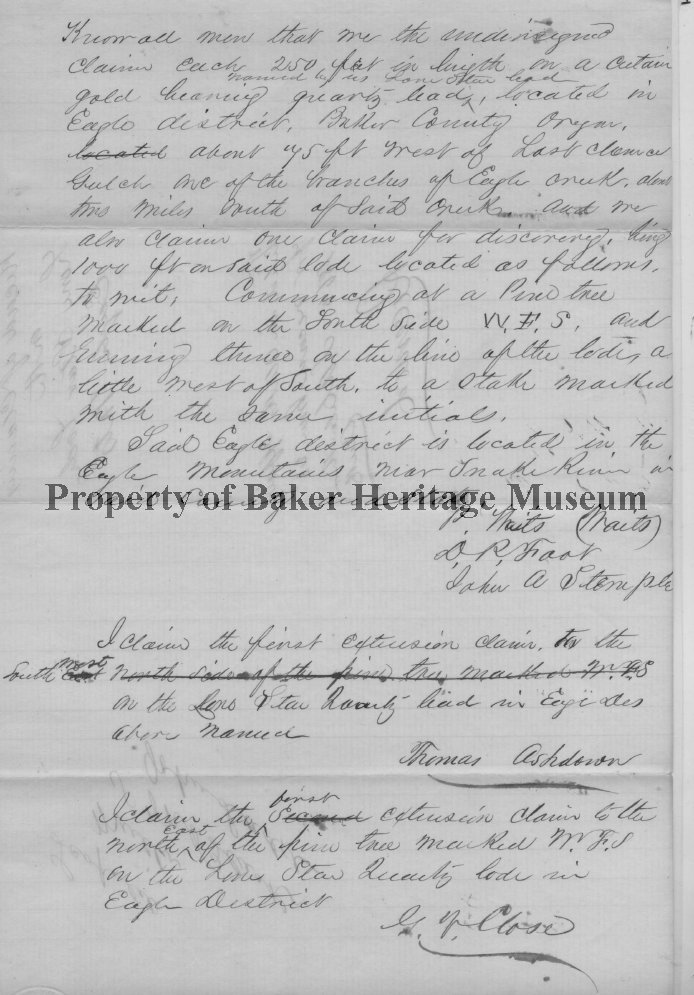 Know all men that we the undersigned
claim each 250 feet in length on a certain
named by us Lone Star lead
gold bearing quartz lead, located in
Eagle district, Baker County Oregon,
located about 75 ft West of Last Chance
Gulch one of the branches of Eagle creek, about
two miles South of Said Creek and we
also claim one claim for discovery, being
1000 ft on Said lode located as follows,
to wit; Commencing at a Pine tree
marked on the South Side W. F. S. and
running thence on the line of the lode, a
little West of South, to a Stake marked
with the same initials.
Said Eagle district is located in the
Eagle Mountains near Snake River in
Property of Baker Heritage Museum
Waits (Waits)
D. R. Foot
John A Stemple
I claim the first extension claim, to the
South West North Side of the pine tree marked W. F. S
on the Lone Star Quartz lead in Eagle Des
above named
Thomas Ashdown
first
I claim the Second extension claim to the
East
north of the pine tree marked W. F. S
on the Lone Star Quartz lode in
Eagle District
Close